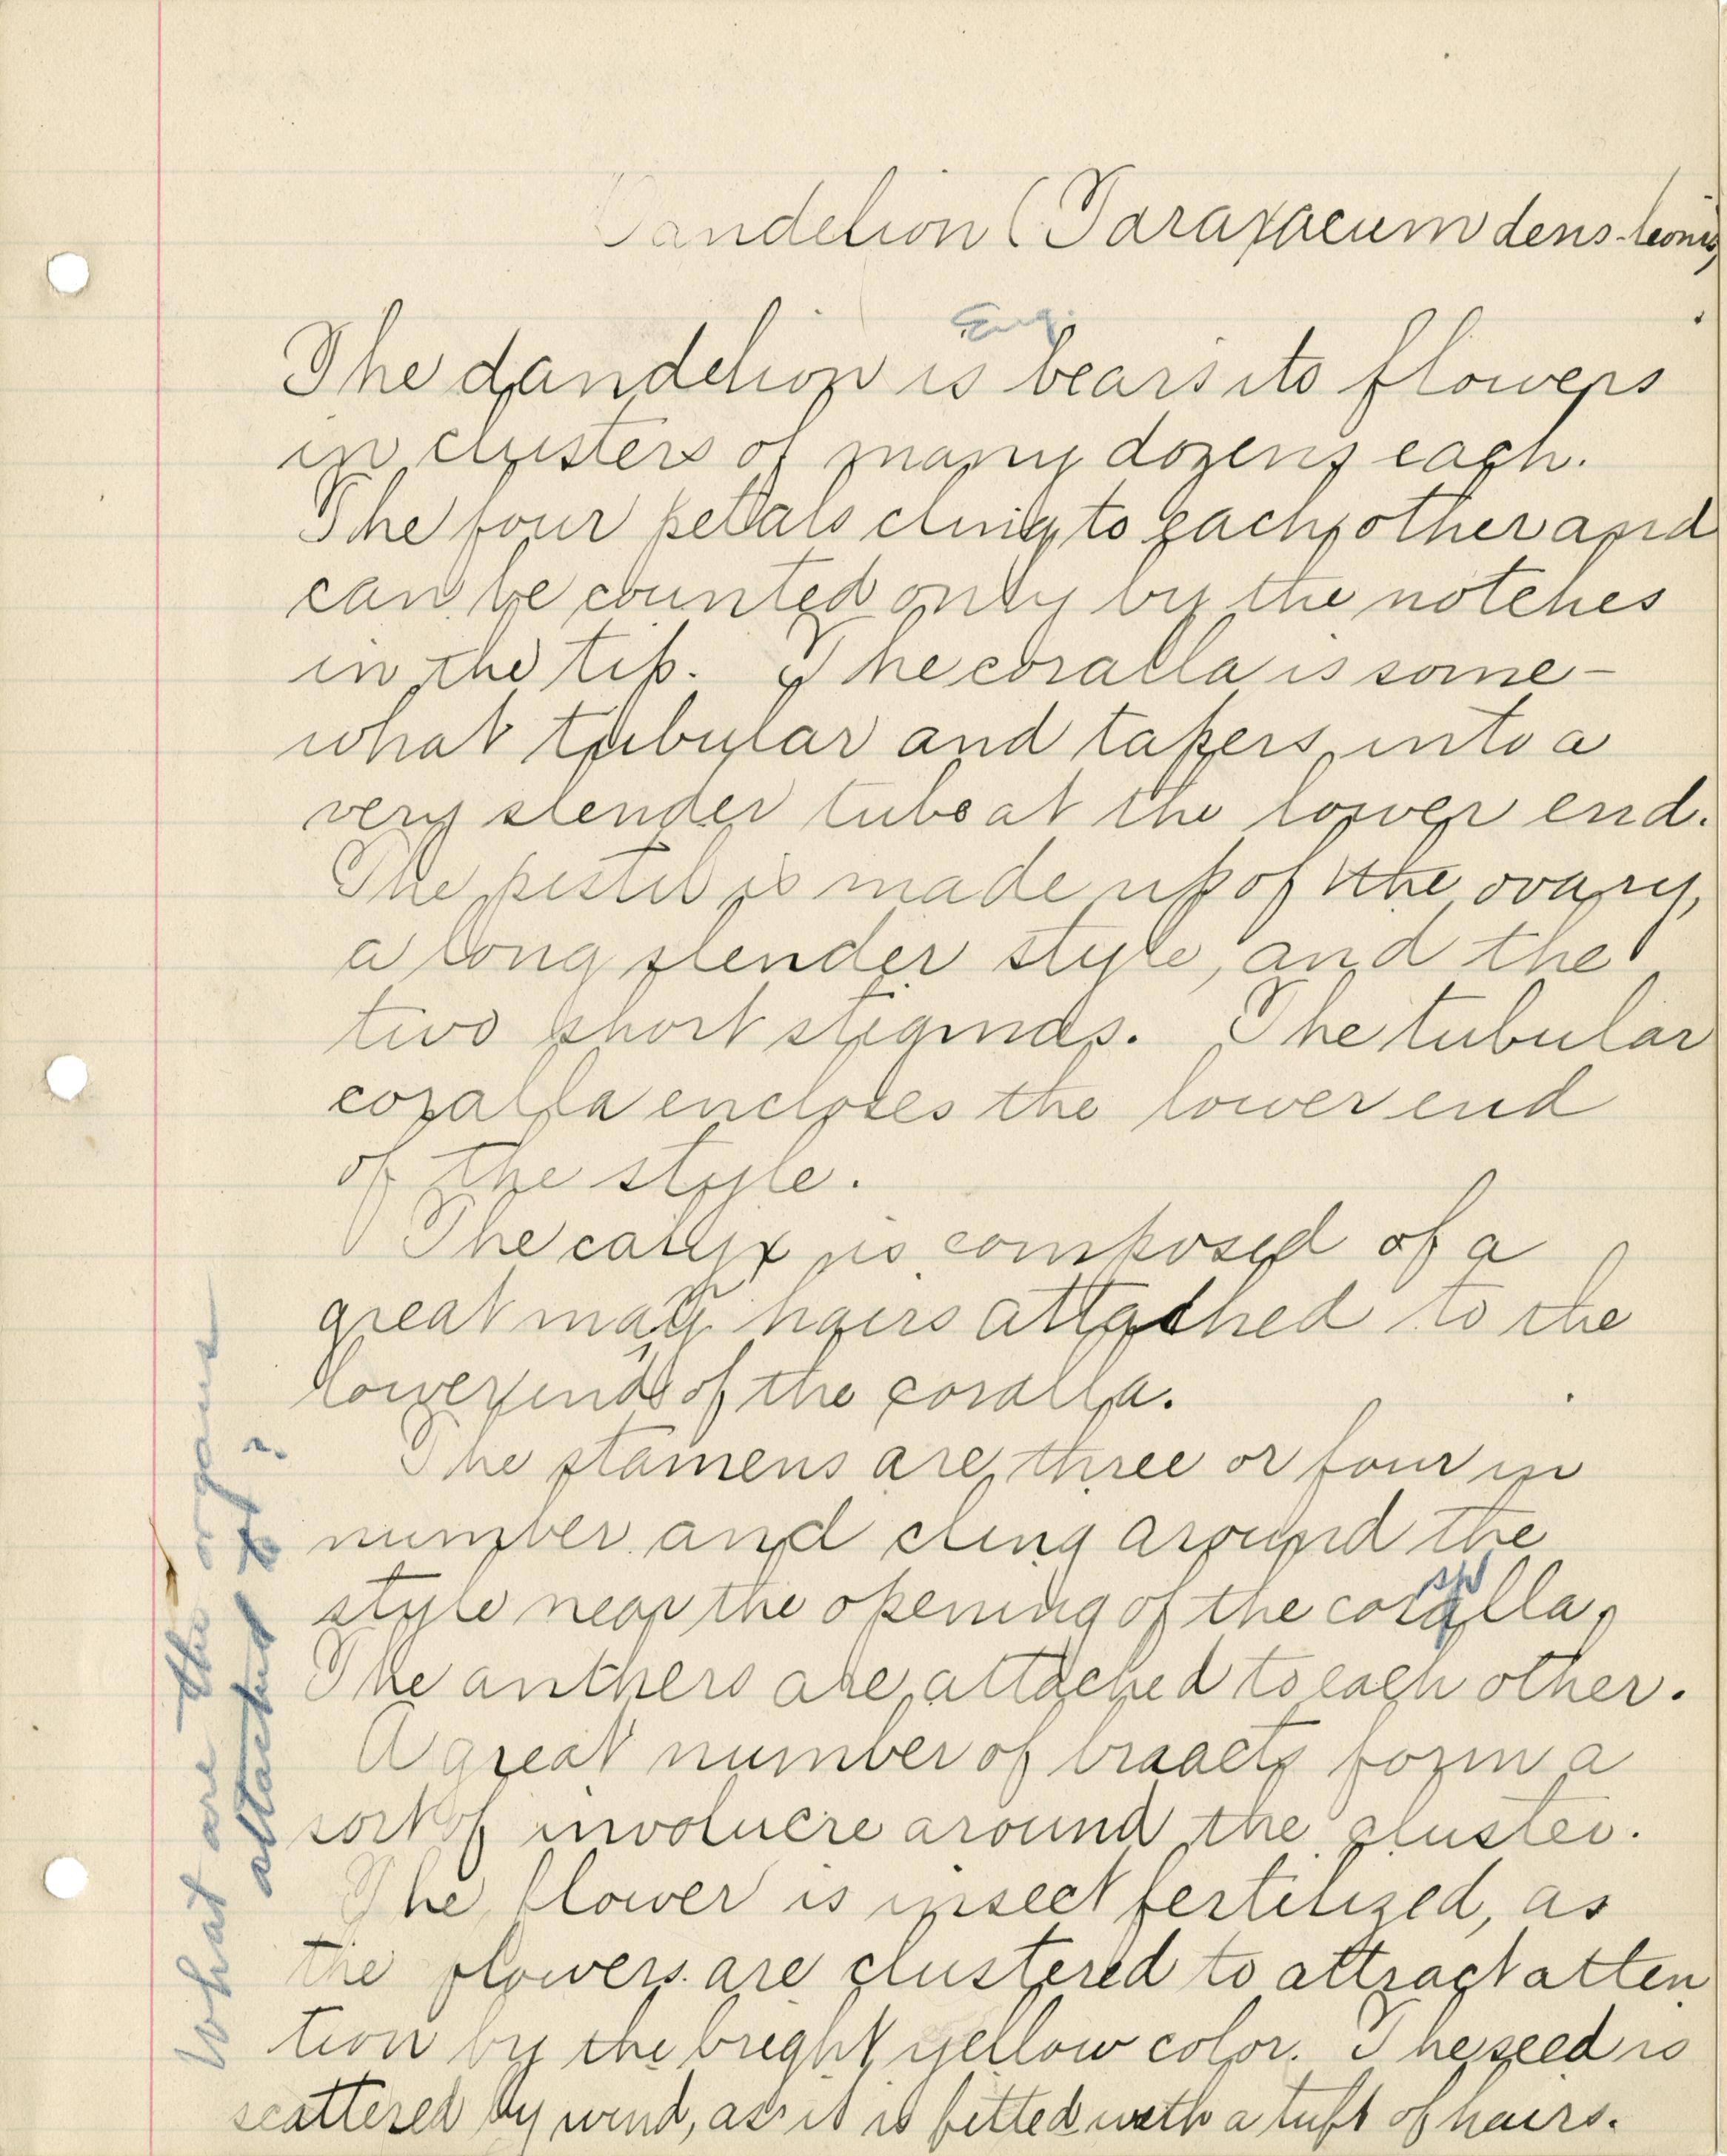 Dandelion (Taraxacum dens-leonis)
Eng.
The dandelion is bears its flowers
in clusters of many dozens each.
The four petals cling to each other and
can be counted only by the notches
in the tip. The coralla is some-
what tubular and tapers into a
very slender tube at the lower end.
The pistil is made up of the ovary,
a long slender style, and the
two short stigmas. The tubular
coralla encloses the lower end
of the style.
The calyx is composed of a
great many hairs attached to the
lower end of the coralla.
The stamens are three or four in
number and cling around the
sp
style near the opening of the coralla.
The anthers are attached to each other.
A great number of braacts form a
sort of involucre around the cluster.
The flower is insect fertilized, as
the flowers are clustered to attract atten
tion by the bright yellow color. The seed is
scattered by wind, as it is fitted with a tuft of hairs.
What are the organs
attached to?